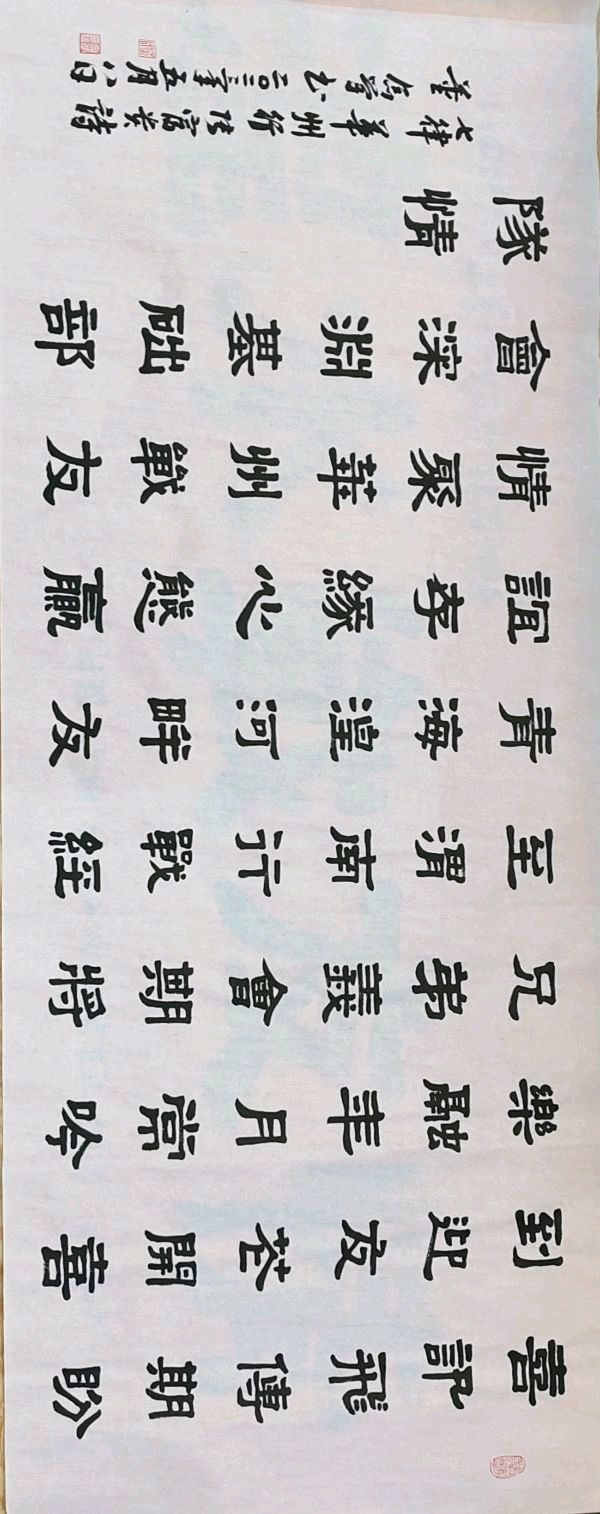 喜訊飛傳期盼
到迎友花開喜
樂融年月常吟
兄弟義會期將
至渭南行戰經
青海湟河畔友
誼緣心態贏
情聚華州戰友
會深淵基礎部
隊情
七律 華州行 詩
董 書 二〇二三年五月八日